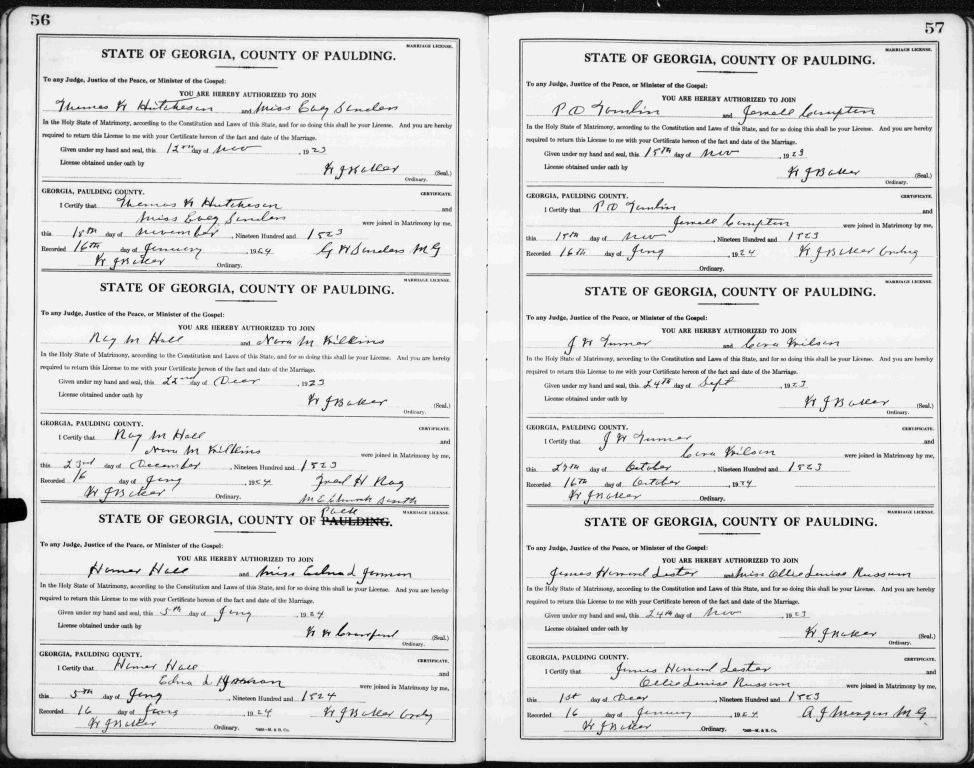 56
MARRIAGE LICENSE.
STATE OF GEORGIA, COUNTY OF PAULDING.
To any Judge, Justice of the Peace, or Minister of the Gospel:
YOU ARE HEREBY AUTHORIZED TO JOIN
Thomas W Hutcheson and Miss Evey Sanders
In the Holy State of Matrimony, according to the Constitution and Laws of this State, and for so doing this shall be your License. And you are hereby
required to return this License to me with your Certificate hereon of the fact and date of the Marriage.
Given under my hand and seal, this 12th day of Nov , 1923
License obtained under oath by
W J Baker (Seal.)
Ordinary.
GEORGIA, PAULDING COUNTY. CERTIFICATE.
I Certify that Thomas W Hutcheson and
Miss Evey Sanders were joined in Matrimony by me,
this 18th day of November , Nineteen Hundred and 1923
Recorded 16th day of January , 1924 G W Sanders M G
W J Baker Ordinary.
MARRIAGE LICENSE.
STATE OF GEORGIA, COUNTY OF PAULDING.
To any Judge, Justice of the Peace, or Minister of the Gospel:
YOU ARE HEREBY AUTHORIZED TO JOIN
Roy M Hall and Nora M Wilkins
In the Holy State of Matrimony, according to the Constitution and Laws of this State, and for so doing this shall be your License. And you are hereby
required to return this License to me with your Certificate hereon of the fact and date of the Marriage.
Given under my hand and seal, this 22nd day of Decr , 1923
License obtained under oath by
W J Baker (Seal.)
Ordinary.
GEORGIA, PAULDING COUNTY. CERTIFICATE.
I Certify that Roy M Hall and
Nora M Wilkins were joined in Matrimony by me,
this 23rd day of December , Nineteen Hundred and 1923
Recorded 16 day of Jany , 1924 Fred H Ray
W J Baker Ordinary. M E Church South
MARRIAGE LICENSE.
Polk
STATE OF GEORGIA, COUNTY OF PAULDING.
To any Judge, Justice of the Peace, or Minister of the Gospel:
YOU ARE HEREBY AUTHORIZED TO JOIN
Homer Hall and Miss Edna
In the Holy State of Matrimony, according to the Constitution and Laws of this State, and for so doing this shall be your License. And you are hereby
required to return this License to me with your Certificate hereon of the fact and date of the Marriage.
Given under my hand and seal, this 5th day of Jany , 1924
License obtained under oath by
Crawford (Seal.)
Ordinary.
GEORGIA, PAULDING COUNTY. CERTIFICATE.
I Certify that Homer Hall and
Edna were joined in Matrimony by me,
this 5th day of Jany , Nineteen Hundred and 1924
Recorded 16 day of Jany , 1924 W J Baker Ordry
W J Baker Ordinary.
57
MARRIAGE LICENSE.
STATE OF GEORGIA, COUNTY OF PAULDING.
To any Judge, Justice of the Peace, or Minister of the Gospel:
YOU ARE HEREBY AUTHORIZED TO JOIN
P D Tomlin and Jewell Compton
In the Holy State of Matrimony, according to the Constitution and Laws of this State, and for so doing this shall be your License. And you are hereby
required to return this License to me with your Certificate hereon of the fact and date of the Marriage.
Given under my hand and seal, this 18th day of Nov , 1923
License obtained under oath by
W J Baker (Seal.)
Ordinary.
GEORGIA, PAULDING COUNTY. CERTIFICATE.
I Certify that P D Tomlin and
Jewell Compton were joined in Matrimony by me,
this 18th day of Nov , Nineteen Hundred and 1923
Recorded 16th day of Jany , 1924 W J Baker Ordry
Ordinary.
MARRIAGE LICENSE.
STATE OF GEORGIA, COUNTY OF PAULDING.
To any Judge, Justice of the Peace, or Minister of the Gospel:
YOU ARE HEREBY AUTHORIZED TO JOIN
J W Turner and Cora Wilson
In the Holy State of Matrimony, according to the Constitution and Laws of this State, and for so doing this shall be your License. And you are hereby
required to return this License to me with your Certificate hereon of the fact and date of the Marriage.
Given under my hand and seal, this 24th day of Sept , 1923
License obtained under oath by
W J Baker (Seal.)
Ordinary.
GEORGIA, PAULDING COUNTY. CERTIFICATE.
I Certify that J W Turner and
Cora Wilson were joined in Matrimony by me,
this 27th day of October , Nineteen Hundred and 1923
Recorded 16th day of October , 1924
W J Baker Ordinary.
MARRIAGE LICENSE.
STATE OF GEORGIA, COUNTY OF PAULDING.
To any Judge, Justice of the Peace, or Minister of the Gospel:
YOU ARE HEREBY AUTHORIZED TO JOIN
James Howard Lester and Miss Ollie Denise Russum
In the Holy State of Matrimony, according to the Constitution and Laws of this State, and for so doing this shall be your License. And you are hereby
required to return this License to me with your Certificate hereon of the fact and date of the Marriage.
Given under my hand and seal, this 24th day of Nov , 1923
License obtained under oath by
W J Baker (Seal.)
Ordinary.
GEORGIA, PAULDING COUNTY. CERTIFICATE.
I Certify that James Howard Lester and
Ollie Denise Russum were joined in Matrimony by me,
this 1st day of Decr , Nineteen Hundred and 1923
Recorded 16 day of January , 1924 A J Morgan M G
W J Baker Ordinary.